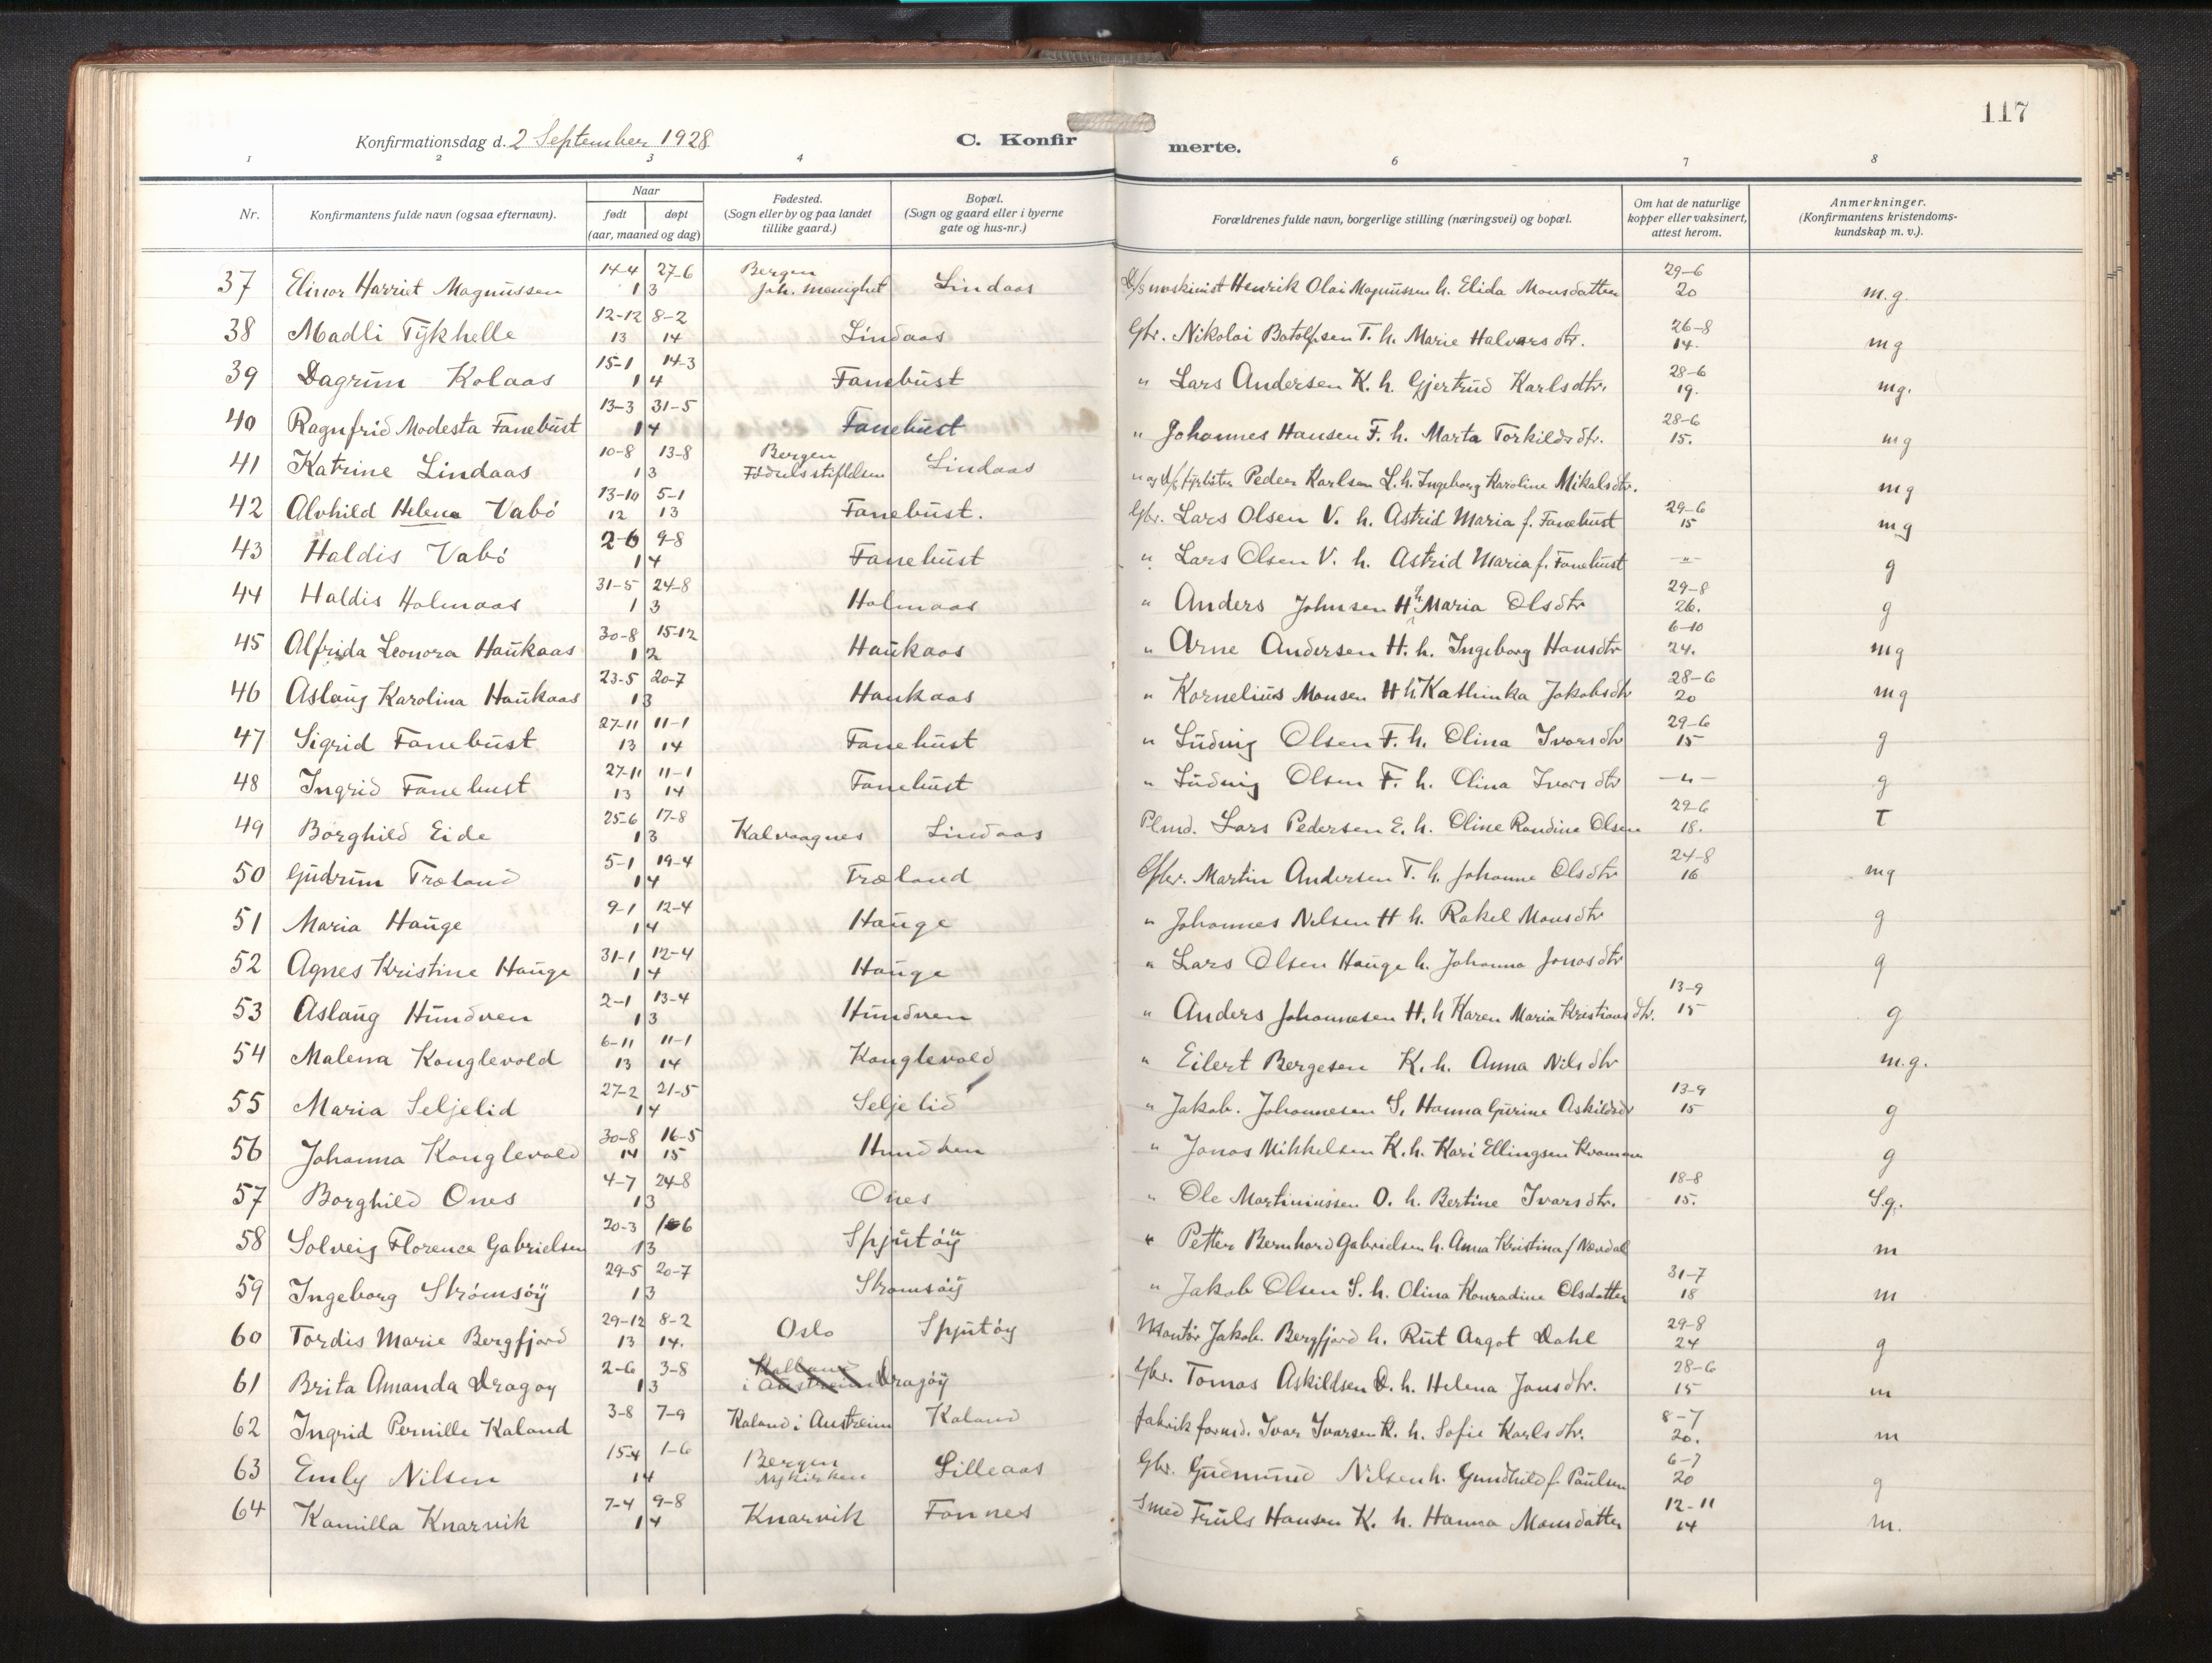 117
Konfirmationsdag d. 2 September 1928
C. Konfirmerte.
1 2 3 4 6 7 8
Nr. Konfirmantens fulde navn (ogsaa efternavn). Naar født døpt (aar, maaned og dag) Fødested. (Sogn eller by og paa landet tillike gaard.) Bopæl. (Sogn og gaard eller i byerne gate og hus-nr.) Forældrenes fulde navn, borgerlige stilling (næringsvei) og bopæl. Om hat de naturlige kopper eller vaksinert, attest herom. Anmerkninger. (Konfirmantens kristendoms-kundskap m. v.).
37 Elinor Harriet Magnussen 14-4 27-6 13 Bergen Joh. menighet Lindaas D/s maskinist Henrik Olai Magnussen h. Elida Monsdatter 29-6 20 m.g.
38 Madli Tykhelle 12-12 13 8-2 14 Lindaas Gbr. Nikolai Botolfsen T. h. Marie Halvorsdtr. 26-8 14. mg
39 Dagrun Kolaas 15-1 14-3 14 Fanebust " Lars Andersen K. h. Gjertrud Karlsdtr. 28-6 19. mg.
40 Ragnfrid Modesta Fanebust 13-3 31-5 14 Fanebust " Johannes Hansen F. h. Marta Torkildsdtr. 28-6 15. mg
41 Katrine Lindaas 10-8 13-8 13 Bergen Fødselsstiftelsen Lindaas " og D/s fyrbøter Peder Karlsen L. h. Ingeborg Karoline Mikalsdtr. mg
42 Alvhild Helena Vabø 13-10 12 5-1 13 Fanebust. Gbr. Lars Olsen V. h. Astrid Maria f. Fanebust 29-6 15 mg
43 Haldis Vabø 2-6 9-8 14 Fanebust " Lars Olsen V. h. Astrid Maria f. Fanebust -"- g
44 Haldis Holmaas 31-5 24-8 13 Holmaas " Anders Johnsen H. h. Maria Olsdtr 29-8 26. g
45 Alfrida Leonora Haukaas 30-8 15-12 12 Haukaas " Arne Andersen H. h. Ingeborg Hansdtr 6-10 24. mg
46 Aslaug Karolina Haukaas 23-5 20-7 13 Haukaas " Kornelius Monsen H h. Kathinka Jakobsdtr 28-6 20 mg
47 Sigrid Fanebust 27-11 13 11-1 14 Fanebust " Ludvig Olsen F. h. Olina Ivarsdtr 29-6 15 g
48 Ingrid Fanebust 27-11 13 11-1 14 Fanebust " Ludvig Olsen F. h. Olina Ivarsdtr -"- g
49 Borghild Eide 25-6 17-8 13 Kalvaagnes Lindaas Plmd. Lars Pedersen E. h. Oline Randine Olsen 29-6 18. T
50 Gudrun Træland 5-1 19-4 14 Træland Gbr. Martin Andersen T. h. Johanne Olsdtr 24-8 16 mg
51 Maria Hauge 9-1 12-4 14 Hauge " Johannes Nilsen H h. Rakel Monsdtr g
52 Agnes Kristine Hauge 31-1 12-4 14 Hauge " Lars Olsen Hauge h. Johanna Jonasdtr g
53 Aslaug Hundven 2-1 13-4 13 Hundven " Anders Johannesen H. h Karen Maria Kristiansdtr. 13-9 15 g
54 Malena Konglevold 6-11 13 11-1 14 Konglevold " Eilert Bergesen K. h. Anna Nilsdtr m.g.
55 Maria Seljelid 27-2 21-5 14 Seljelid " Jakob. Johannesen S. Hanna Gurine Askildsdr 13-9 15 g
56 Johanna Konglevold 30-8 14 16-5 15 Hundven " Jonas Mikkelsen K. h. Kari Ellingsen Kvamme g
57 Borghild Ones 4-7 24-8 13 Ones " Ole Martiniussen O. h. Bertine Ivarsdtr. 18-8 15. S.g.
58 Solveig Florence Gabrielsen 20-3 13 Spjutøÿ " Petter Bernhard Gabrielsen h. Anna Kristina f Nævdal m
59 Ingeborg Strømsøÿ 29-5 20-7 13 Strømsøÿ " Jakob Olsen S. h. Olina Konradine Olsdatter 31-7 18 m
60 Tordis Marie Bergfjord 29-12 13 8-2 14. Oslo Spjutøy Montør Jakob. Bergfjord h. Rut Aagot Dahl 29-8 24 g
61 Brita Amanda Dragøy 2-6 3-8 13 i Austreim Dragøÿ Gbr. Tomas Askildsen D. h. Helena Jonsdtr. 28-6 15 m
62 Ingrid Pernille Kaland 3-8 7-9 Kaland i Austreim Kaland fabrik formd. Ivar Ivarsen K. h. Sofie Karlsdtr. 8-7 20. m
63 Emly Nilsen 15-4 1-6 14 Bergen Nykirken Lilleaas Gbr. Gudmund Nilsen h. Gundhild f. Paulsen 6-7 20 g
64 Kamilla Knarvik 7-4 9-8 14 Knarvik Fonnes Smed Truls Hansen K. h. Hanna Monsdatter 12-11 14 m.